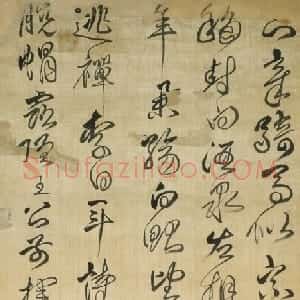 章騎馬似乘
移封向酒泉左相
年舉觴白眼望
逃禪李白一斗詩
脫帽露頂王公前揮
Shufaziliao.com